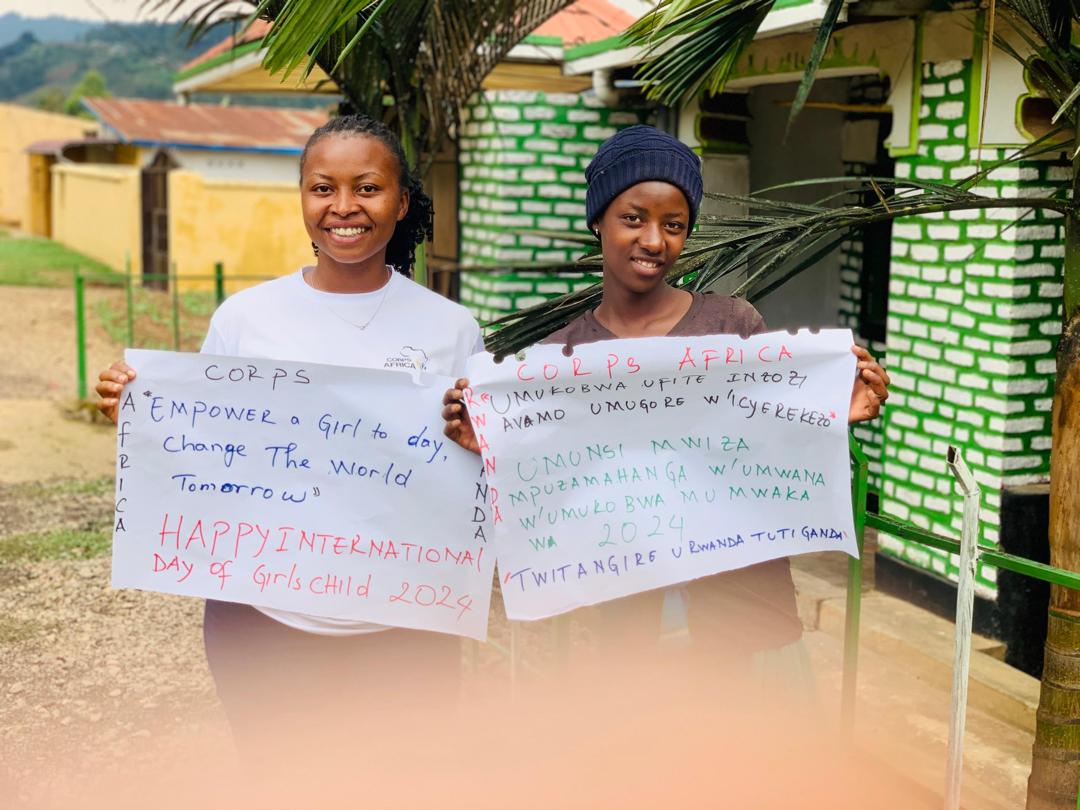 CORPS
AFRICA
"EMPOWER a Girl to day,
Change The World
Tomorrow"
HAPPY INTERNATIONAL
Day of Girls CHild 2024
CORPS
AFRICA
CORPS AFRICA
RWANDA
"UMUKOBWA UFITE INZOZI
AVAMO UMUGORE W'ICYEREKEZO"
UMUNSI MWIZA
MPUZAMAHANGA W'UMWANA
W'UMUKOBWA MU MWAKA
WA 2024
"TWITANGIRE URWANDA TUTIGANDA"